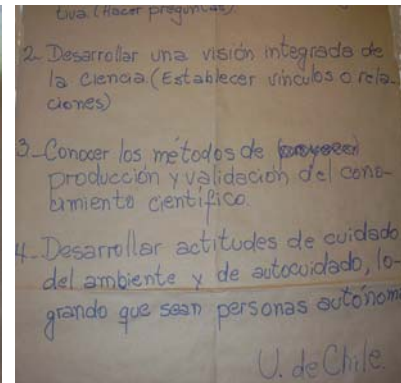 tiva (Hacer preguntas).
2- Desarrollar una visión integrada de
la ciencia (Establecer vínculos o rela-
ciones)
3- Conocer los métodos de
producción y validación del cono-
cimiento científico.
4- Desarrollar actitudes de cuidado
del ambiente y de autocuidado, lo-
grando que sean personas autónom
U. de Chile